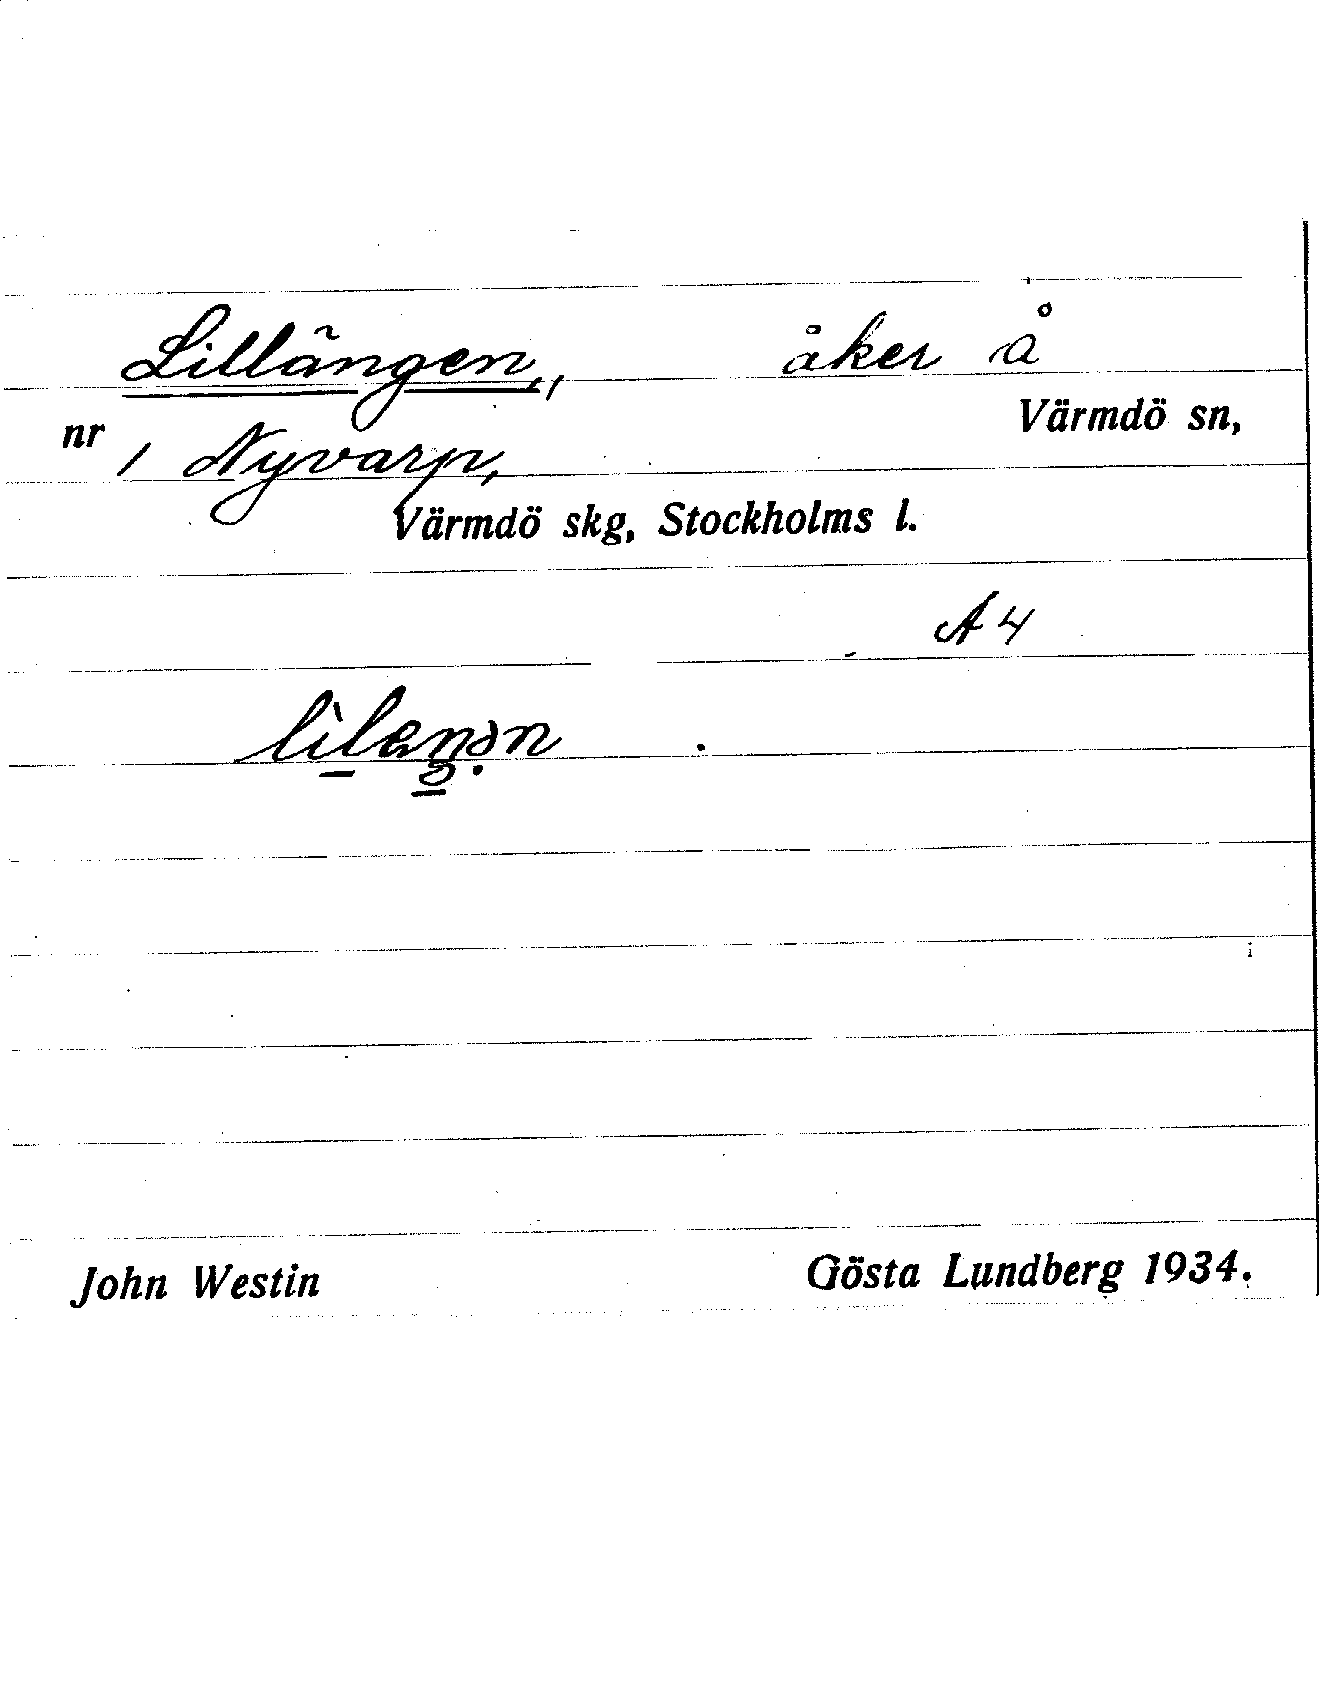 Lillängen, åker å
nr 1 Nyvarp, Värmdö sn,
Värmdö skg, Stockholms l.
A 4
John Westin Gösta Lundberg 1934.